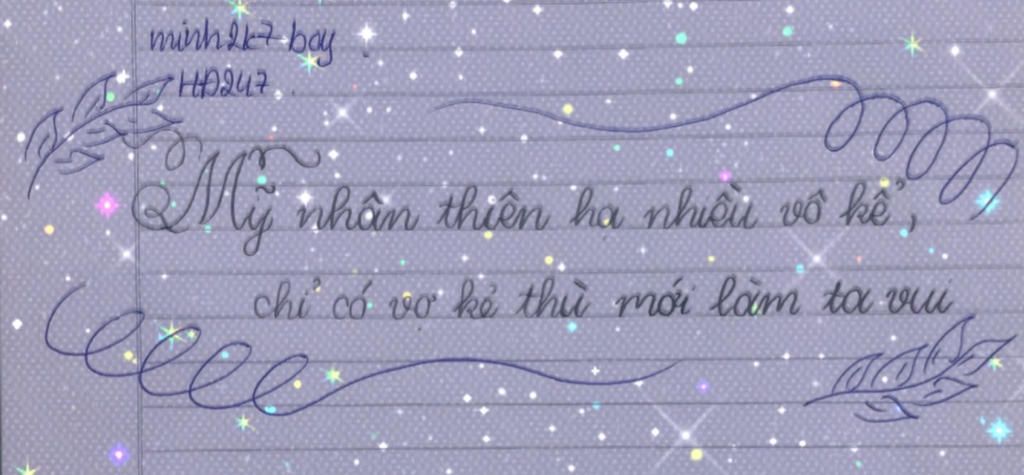 minh2k7-boy
HD247.
Mỹ nhân thiên hạ nhiều vô kể,
chỉ có vợ kẻ thù mới làm ta vui